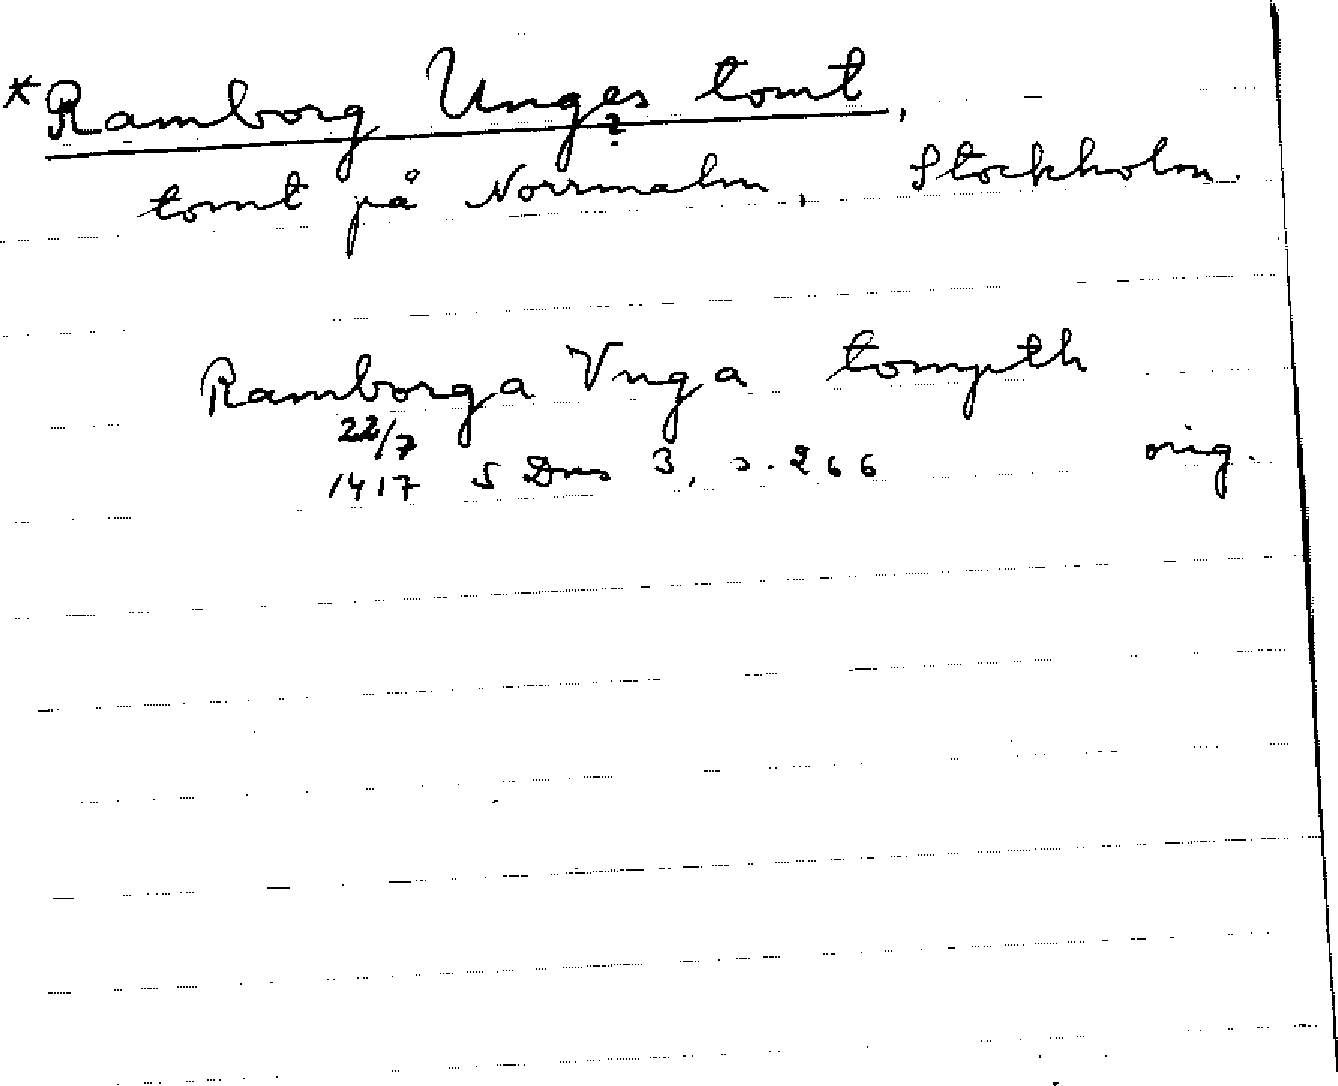 *Ramborg Unges tomt,
?
tomt på Norrmalm, Stockholm.
Ramborga Vnga tompth
22/7
1417 SDns 3, s. 266 orig.